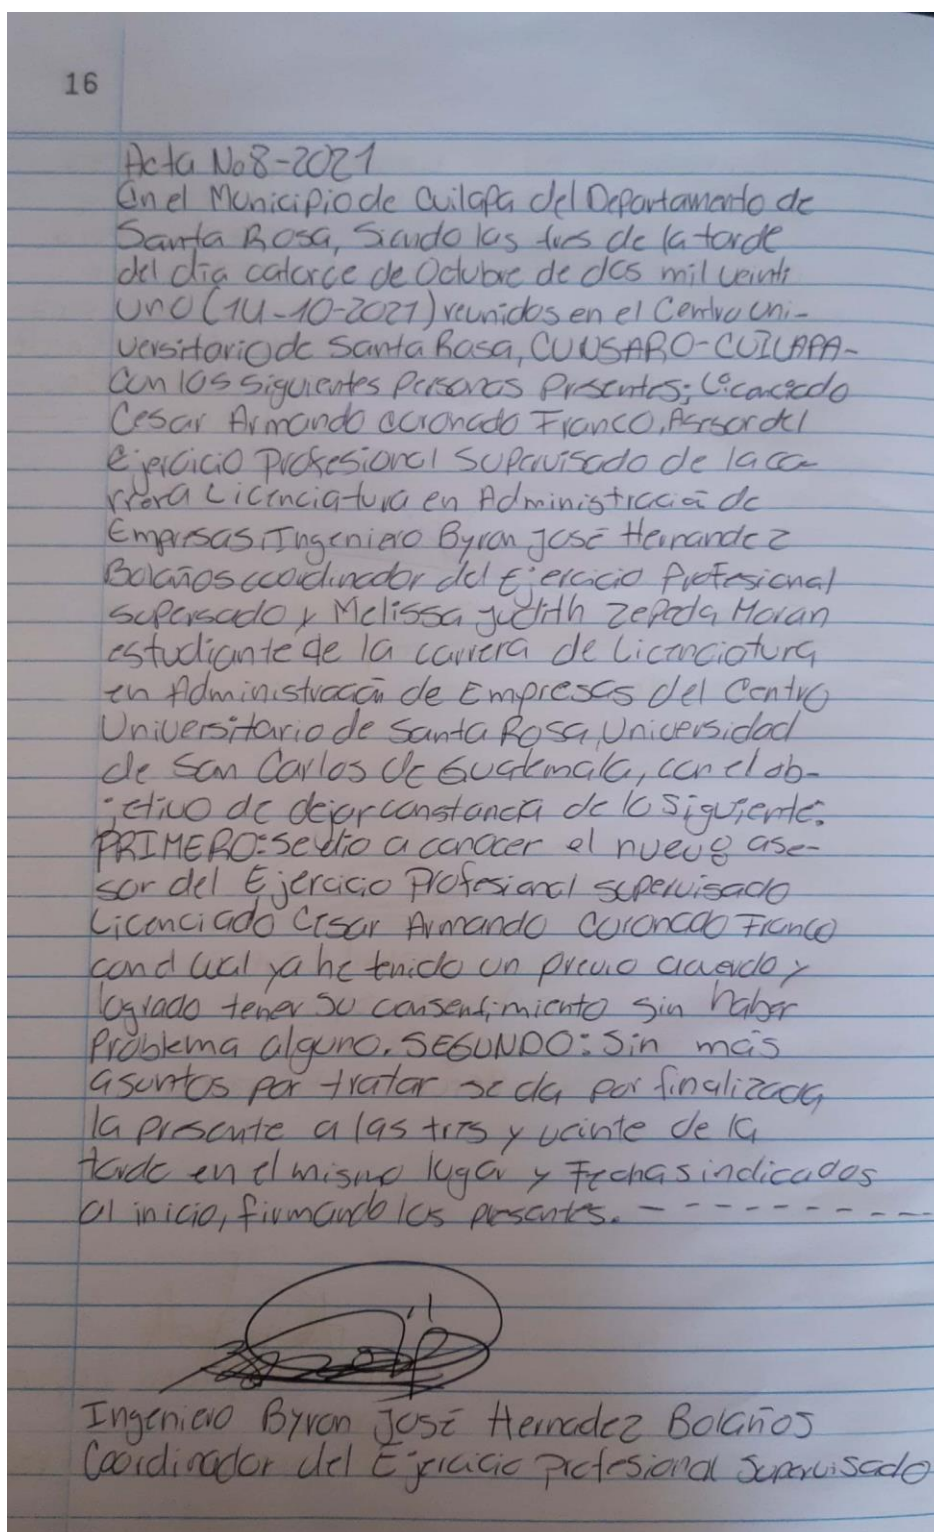 16
Acta No8-2021
En el Municipio de Cuilapa del Departamento de
Santa Rosa, Siendo las tres de la tarde
del día catorce de Octubre de dos mil veinti
uno (14-10-2021) reunidos en el Centro Uni-
versitario de Santa Rosa, CUNSARO-CUILAPA-
Con las siguientes Personas Presentes; Licenciado
Cesar Armando Coronado Franco, Asesor del
Ejercicio Profesional Supervisado de la ca-
rrera Licenciatura en Administración de
Empresas, Ingeniero Byron José Hernandez
Bolaños coordinador del Ejercicio Profesional
supersado y Melissa Judith Zepeda Moran
estudiante de la carrera de Licenciatura
en Administración de Empresas del Centro
Universitario de Santa Rosa, Universidad
de San Carlos de Guatemala, con el ob-
jetivo de dejar constancia de lo siguiente:
PRIMERO: se dio a conocer el nuevo ase-
sor del Ejercicio Profesional supervisado
Licenciado Cesar Armando Coronado Franco
con el cual ya he tenido un previo acuerdo y
logrado tener su consentimiento sin haber
Problema alguno. SEGUNDO: Sin más
asuntos por tratar se da por finalizada
la presente a las tres y veinte de la
tarde en el mismo lugar y Fechas indicados
al inicio, firmando los presentes. - - - - - - - - - -
Ingeniero Byron José Hernadez Bolaños
Coordinador del Ejercicio profesional Supervisado